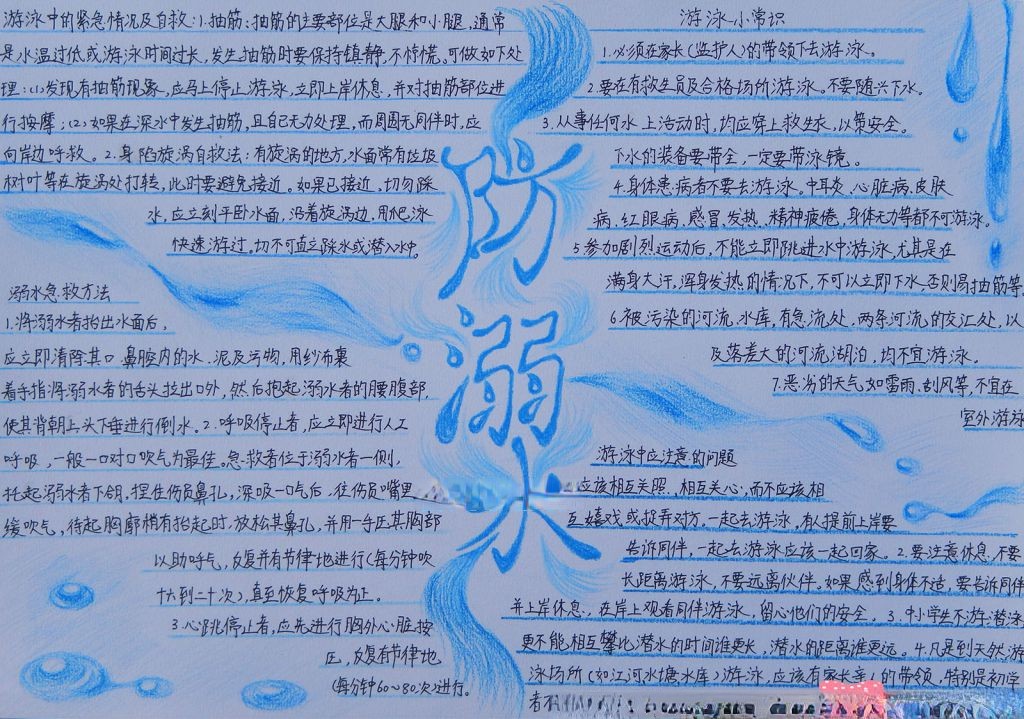 游泳中的紧急情况及自救:1.抽筋:抽筋的主要部位是大腿和小腿,通常
是水温过低或游泳时间过长,发生抽筋时要保持镇静,不惊慌。可做如下处
理:(1)发现有抽筋现象,应马上停止游泳,立即上岸休息,并对抽筋部位进
行按摩;(2)如果在深水中发生抽筋,且自己无力处理,而周围无同伴时,应
向岸边呼救。2.身陷旋涡自救法:有旋涡的地方,水面常有垃圾
树叶等在旋涡处打转,此时要避免接近。如果已接近,切勿踩
水,应立刻平卧水面,沿着旋涡边,用爬泳
快速游过,切不可直立踩水或潜入水中。
溺水急救方法
1.将溺水者抬出水面后,
应立即清除其口鼻腔内的水、泥及污物,用纱布裹
着手指将溺水者的舌头拉出口外,然后抱起溺水者的腰腹部,
使其背朝上头下垂进行倒水。2.呼吸停止者,应立即进行人工
呼吸,一般一口对口吹气为最佳。急救者位于溺水者一侧,
托起溺水者下颌,捏住伤员鼻孔,深吸一口气后,往伤员嘴里
缓吹气,待起胸廓稍有抬起时,放松其鼻孔,并用一手压其胸部
以助呼气,反复并有节律地进行(每分钟吹
十六到二十次),直至恢复呼吸为正。
3.心跳停止者,应先进行胸外心脏按
压,反复有节律地
(每分钟60~80次)进行。
防
溺
水
游泳小常识
1.必须在家长(监护人)的带领下去游泳。
2.要在有救生员及合格场所游泳。不要随兴下水。
3.从事任何水上活动时,均应穿上救生衣,以策安全。
下水的装备要带全,一定要带泳镜。
4.身体患病者不要去游泳。中耳炎、心脏病、皮肤
病、红眼病、感冒、发热、精神疲倦,身体无力等都不可游泳。
5.参加剧烈运动后,不能立即跳进水中游泳,尤其是在
满身大汗,浑身发热的情况下,不可以立即下水,否则易抽筋等,
6.被污染的河流、水库,有急流处,两条河流的交汇处,以
及落差大的河流湖泊,均不宜游泳。
7.恶劣的天气如雷雨、刮风等,不宜在
室外游泳
游泳中应注意的问题
应该相互关照,相互关心,而不应该相
互嬉戏或捉弄对方。一起去游泳,有人提前上岸要
告诉同伴,一起去游泳应该一起回家。2.要注意休息,不要
长距离游泳,不要远离伙伴。如果感到身体不适,要告诉同伴
并上岸休息,在岸上观看同伴游泳,留心他们的安全。3.中小学生不游潜泳
更不能相互攀比潜水的时间谁更长,潜水的距离谁更远。4.凡是到天然游
泳场所(如江河水塘水库)游泳,应该有家长亲人的带领,特别是初学
者